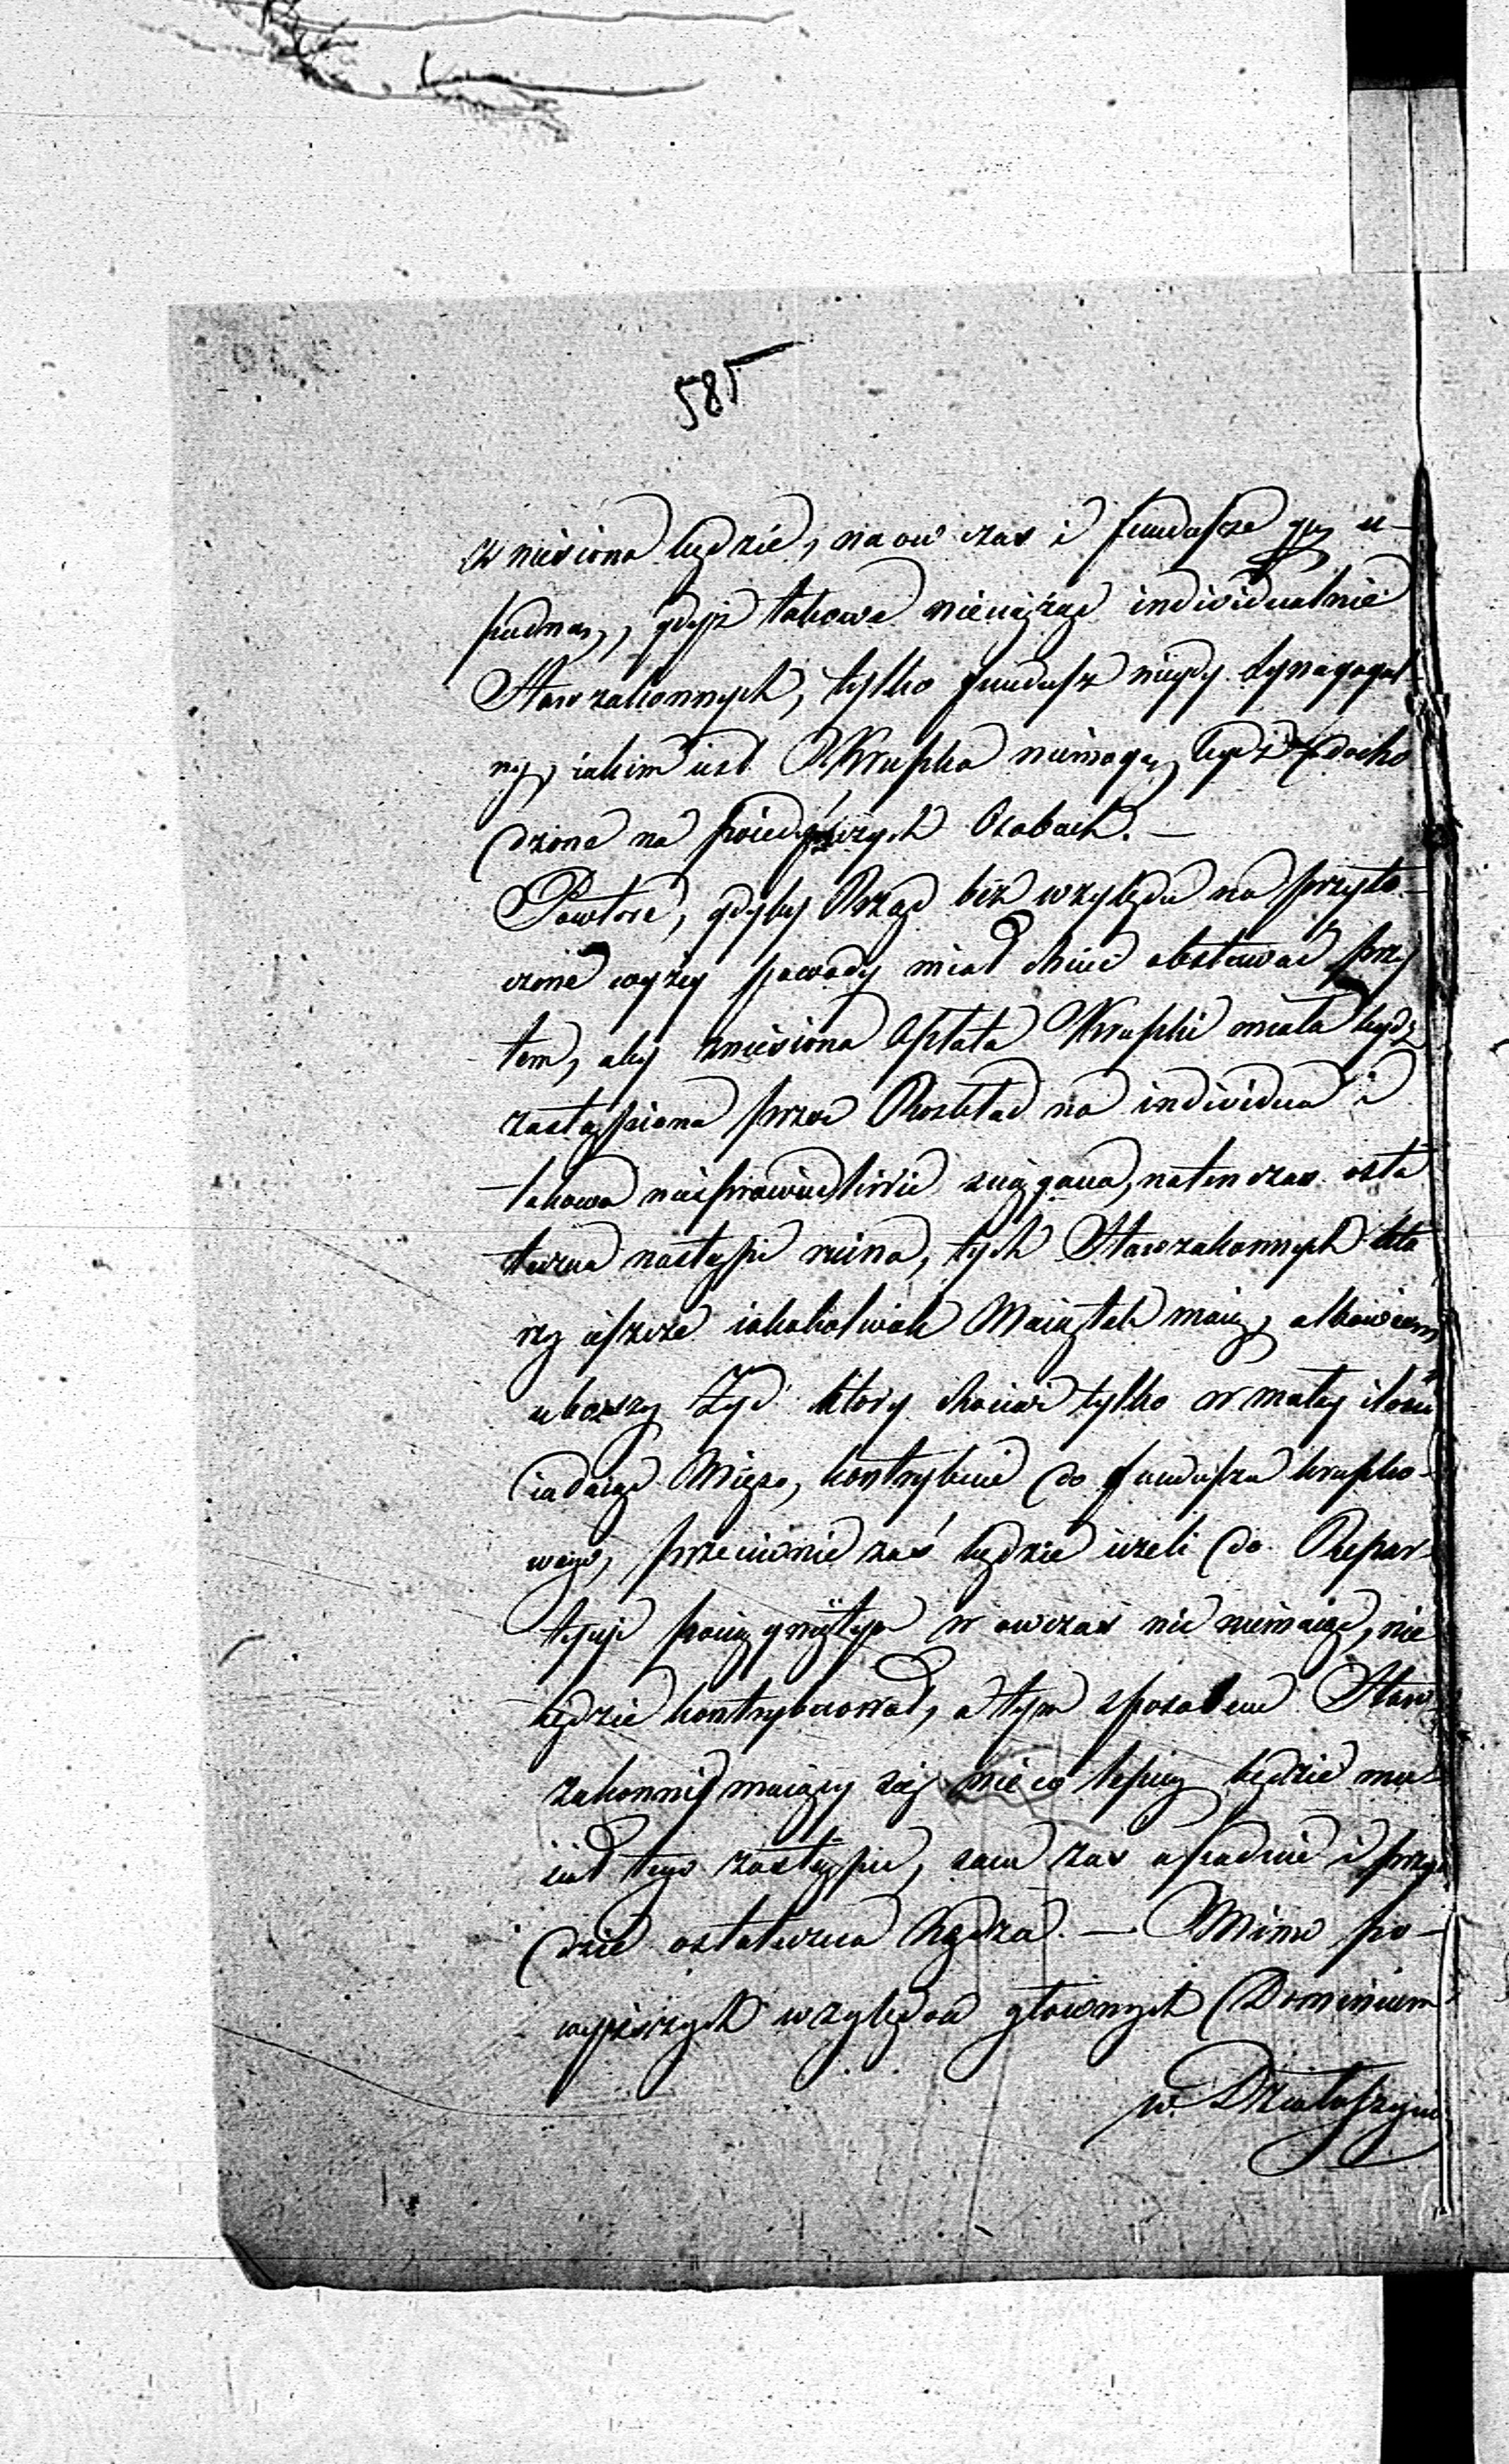 585
zniesiona będzie, na ow czas i fundusze jey u-
padną, gdyż takowe nieciążąc individualnie
Starozakonnych, tylko fundusz niegdy Synagogal
ny, iakim iest Krupka niemogą bydź docho
dzone na poiedynczych Osobach. —
Powtore, gdyby Rząd bez względu na przyto-
czone wyżey powody miał chcieć obstawać przy
tem, aby zniesiona Opłata Krupki miała bydź
zastąpiona przez Rozkład na individua i
takowa niesprawiedliwie sciągana, natenczas osta
teczna nastąpi ruina, tych Starozakonnych któ
rzy ieszcze iakokolwiek Maiątek maią, albowiem
uboższy Żyd który chociaż tylko w małey ilości
iadaiąc Mięso, kontrybuie do funduszu krupko-
wego, przeciwnie zaś będzie ieżeli do Repar-
tycyi pociągniętym w owczas nic niemaiąc, nie
będzie kontrybuował, a tym sposobem Staro
zakonny maiący się nieco lepiey będzie mu-
siał tego zastąpić, sam zas upadnie i przyi
dzie ostateczna Nędza. — Mimo po-
wyższych względów głownych Dominium
w Działoszynie